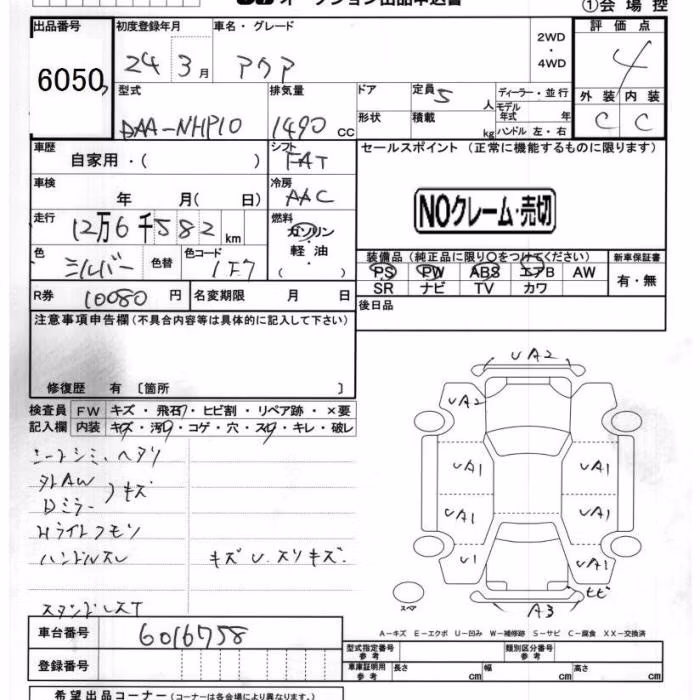 オークション出品申込書
①会場控
出品番号 初度登録年月 車名・グレード 2WD・4WD 評価点
6050 24年3月 アクア 4
型式 排気量 ドア 定員 5人 ディーラー・並行
モデル年式 年
DAA-NHP10 1490cc 形状 積載 kg ハンドル 左・右
外装 内装
C C
車歴 自家用・( ) シフト FAT セールスポイント (正常に機能するものに限ります)
車検 年 月( 日) 冷房 AAC
NOクレーム・売切
走行 12万6千582km 燃料 ガソリン・軽油・( )
色 シルバー 色替 色コード 1F7
装備品 (純正品に限り○をつけてください) 新車保証書
PS PW ABS エアB AW 有・無
SR ナビ TV カワ
R券 10080円 名変期限 月 日 後日品
注意事項申告欄(不具合内容等は具体的に記入して下さい)
修復歴 有 〔箇所 〕
検査員 FW キズ・飛石・ヒビ割・リペア跡・×要
記入欄 内装 キズ・汚れ・コゲ・穴・スレ・キレ・破レ
シートシミ、ヘタリ
外AW
Dミラー
キズ
Hライトクモリ
ハンドルスレ キズ U、スリキズ.
スタンドレスT
UA2
UA2
UA1 UA1
UA1 UA1
U1 UA1
ヒビ
A3
スペア
A−キズ E−エクボ U−凹み W−補修跡 S−サビ C−腐食 XX−交換済
車台番号 6016758
登録番号
型式指定番号 参考 類別区分番号 参考
車庫証明用 参考 長さ cm 幅 cm 高さ cm
希望出品コーナー (コーナーは各会場により異なります)